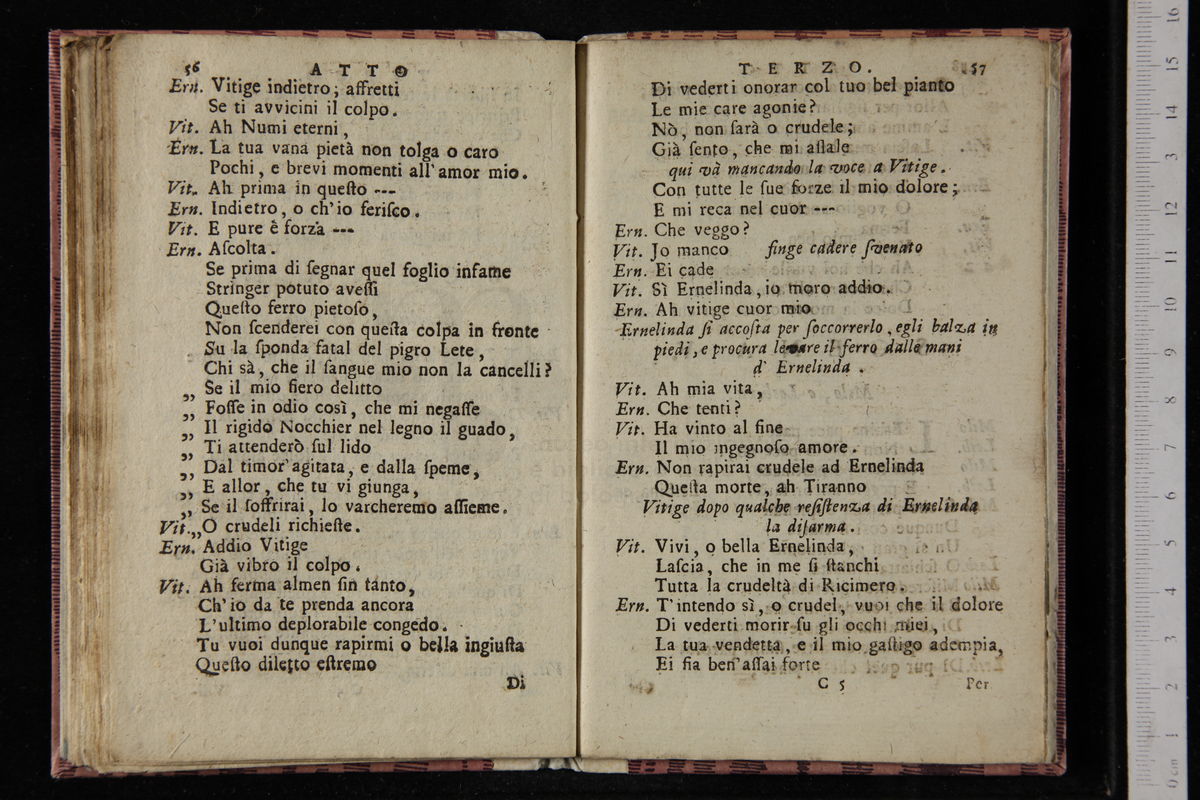 56 ATTO
Ern. Vitige indietro; affretti
Se ti avvicini il colpo.
Vit. Ah Numi eterni,
Ern. La tua vana pietà non tolga o caro
Pochi, e brevi momenti all'amor mio.
Vit. Ah prima in queſto ---
Ern. Indietro, o ch'io feriſco.
Vit. E pure è forza ---
Ern. Aſcolta.
Se prima di ſegnar quel foglio infame
Stringer potuto aveſſi
Queſto ferro pietoſo,
Non ſcenderei con queſta colpa in fronte
Su la ſponda fatal del pigro Lete,
Chi sà, che il ſangue mio non la cancelli?
„ Se il mio fiero delitto
„ Foſſe in odio così, che mi negaſſe
„ Il rigido Nocchier nel legno il guado,
„ Ti attenderò ſul lido
„ Dal timor'agitata, e dalla ſpeme,
„ E allor, che tu vi giunga,
„ Se il ſoffrirai, lo varcheremo aſſieme.
Vit.„O crudeli richieſte.
Ern. Addio Vitige
Già vibro il colpo.
Vit. Ah ferma almen ſin tanto,
Ch'io da te prenda ancora
L'ultimo deplorabile congedo.
Tu vuoi dunque rapirmi o bella ingiuſta
Queſto diletto eſtremo
Di
TERZO. 57
Di vederti onorar col tuo bel pianto
Le mie care agonie?
Nò, non ſarà o crudele;
Già ſento, che mi aſſale
qui và mancando la voce a Vitige.
Con tutte le ſue forze il mio dolore;
E mi reca nel cuor ---
Ern. Che veggo?
Vit. Jo manco finge cadere ſvenato
Ern. Ei cade
Vit. Sì Ernelinda, io moro addio.
Ern. Ah vitige cuor mio
Ernelinda ſi accoſta per ſoccorrerlo, egli balza in
piedi, e procura levare il ferro dalle mani
d' Ernelinda.
Vit. Ah mia vita,
Ern. Che tenti?
Vit. Ha vinto al fine
Il mio ingegnoſo amore.
Ern. Non rapirai crudele ad Ernelinda
Queſta morte, ah Tiranno
Vitige dopo qualche reſiſtenza di Ernelinda
la diſarma.
Vit. Vivi, o bella Ernelinda,
Laſcia, che in me ſi ſtanchi
Tutta la crudeltà di Ricimero.
Ern. T'intendo sì, o crudel, vuoi che il dolore
Di vederti morir ſu gli occhi miei,
La tua vendetta, e il mio gaſtigo adempia,
Ei fia ben'aſſai forte
C 5 Per
0 cm 1 2 3 4 5 6 7 8 9 10 11 12 13 14 15 16